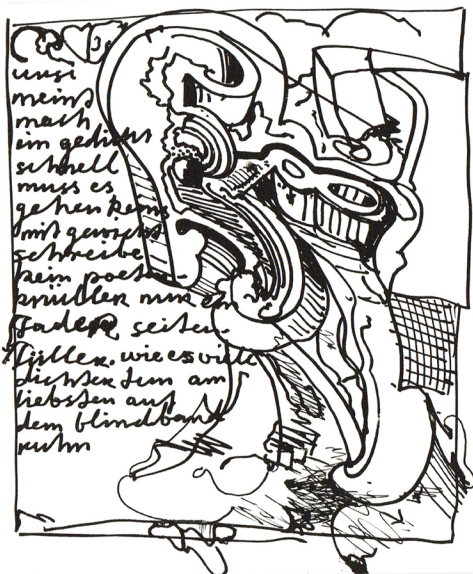 unsi
meint
mach
ein gedicht
schnell
muss es
gehen keins
mit gewicht
schreibe
kein poet
knüller nur ein
fader seiten-
füller wie es viele
dichter tun am
liebsten auf
dem blindband
ruhn